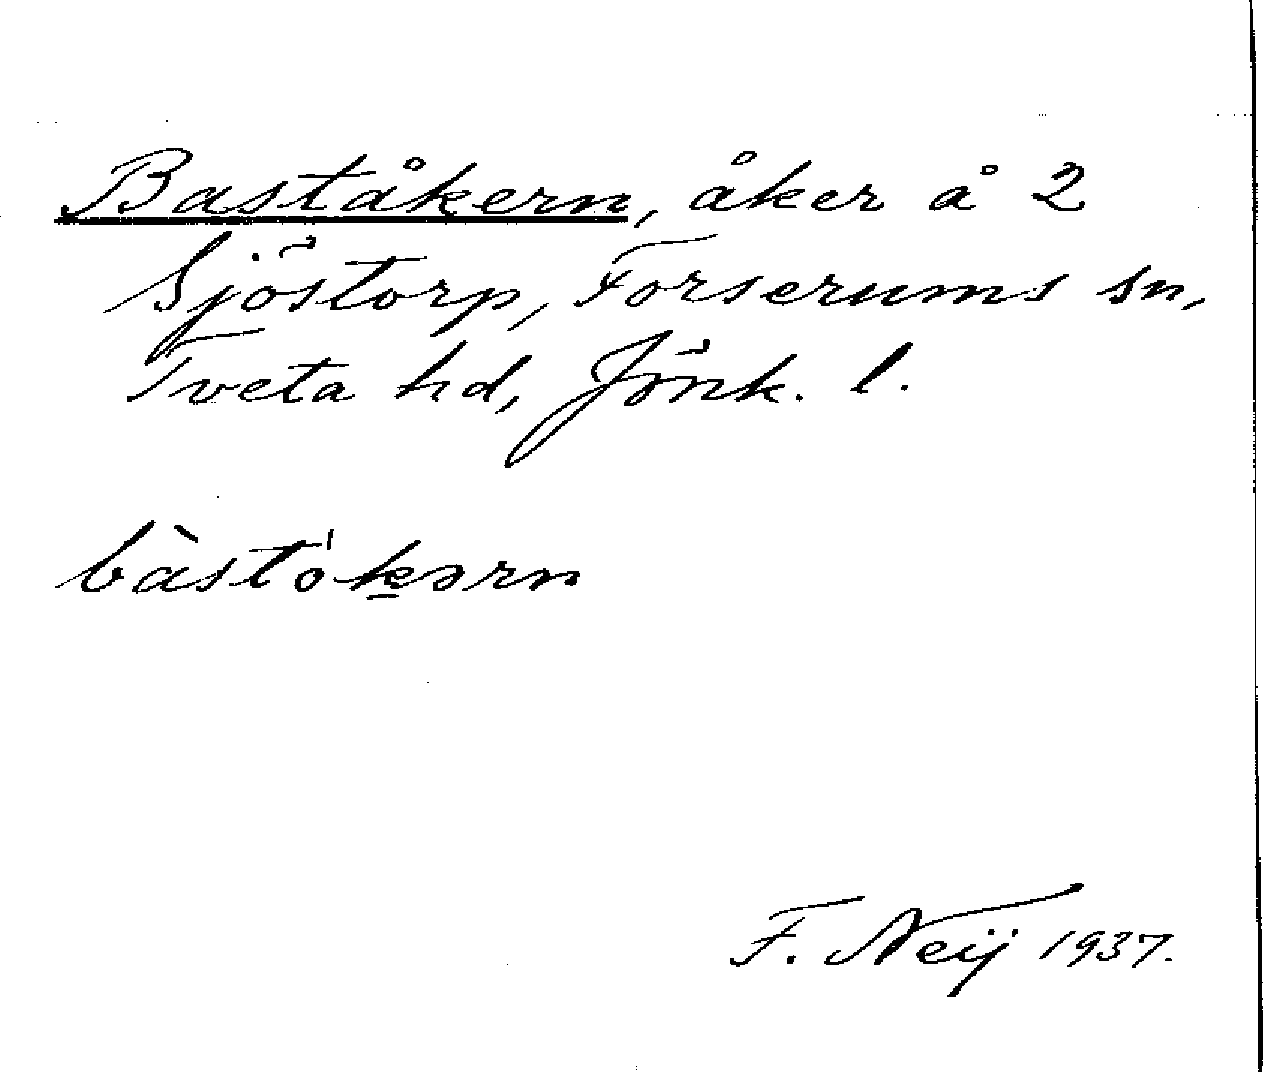 Baståkern, åker å 2
Sjöstorp, Forserums sn,
Tveta hd, Jönk. l.
bàstó̀kərn
F. Neij 1937.